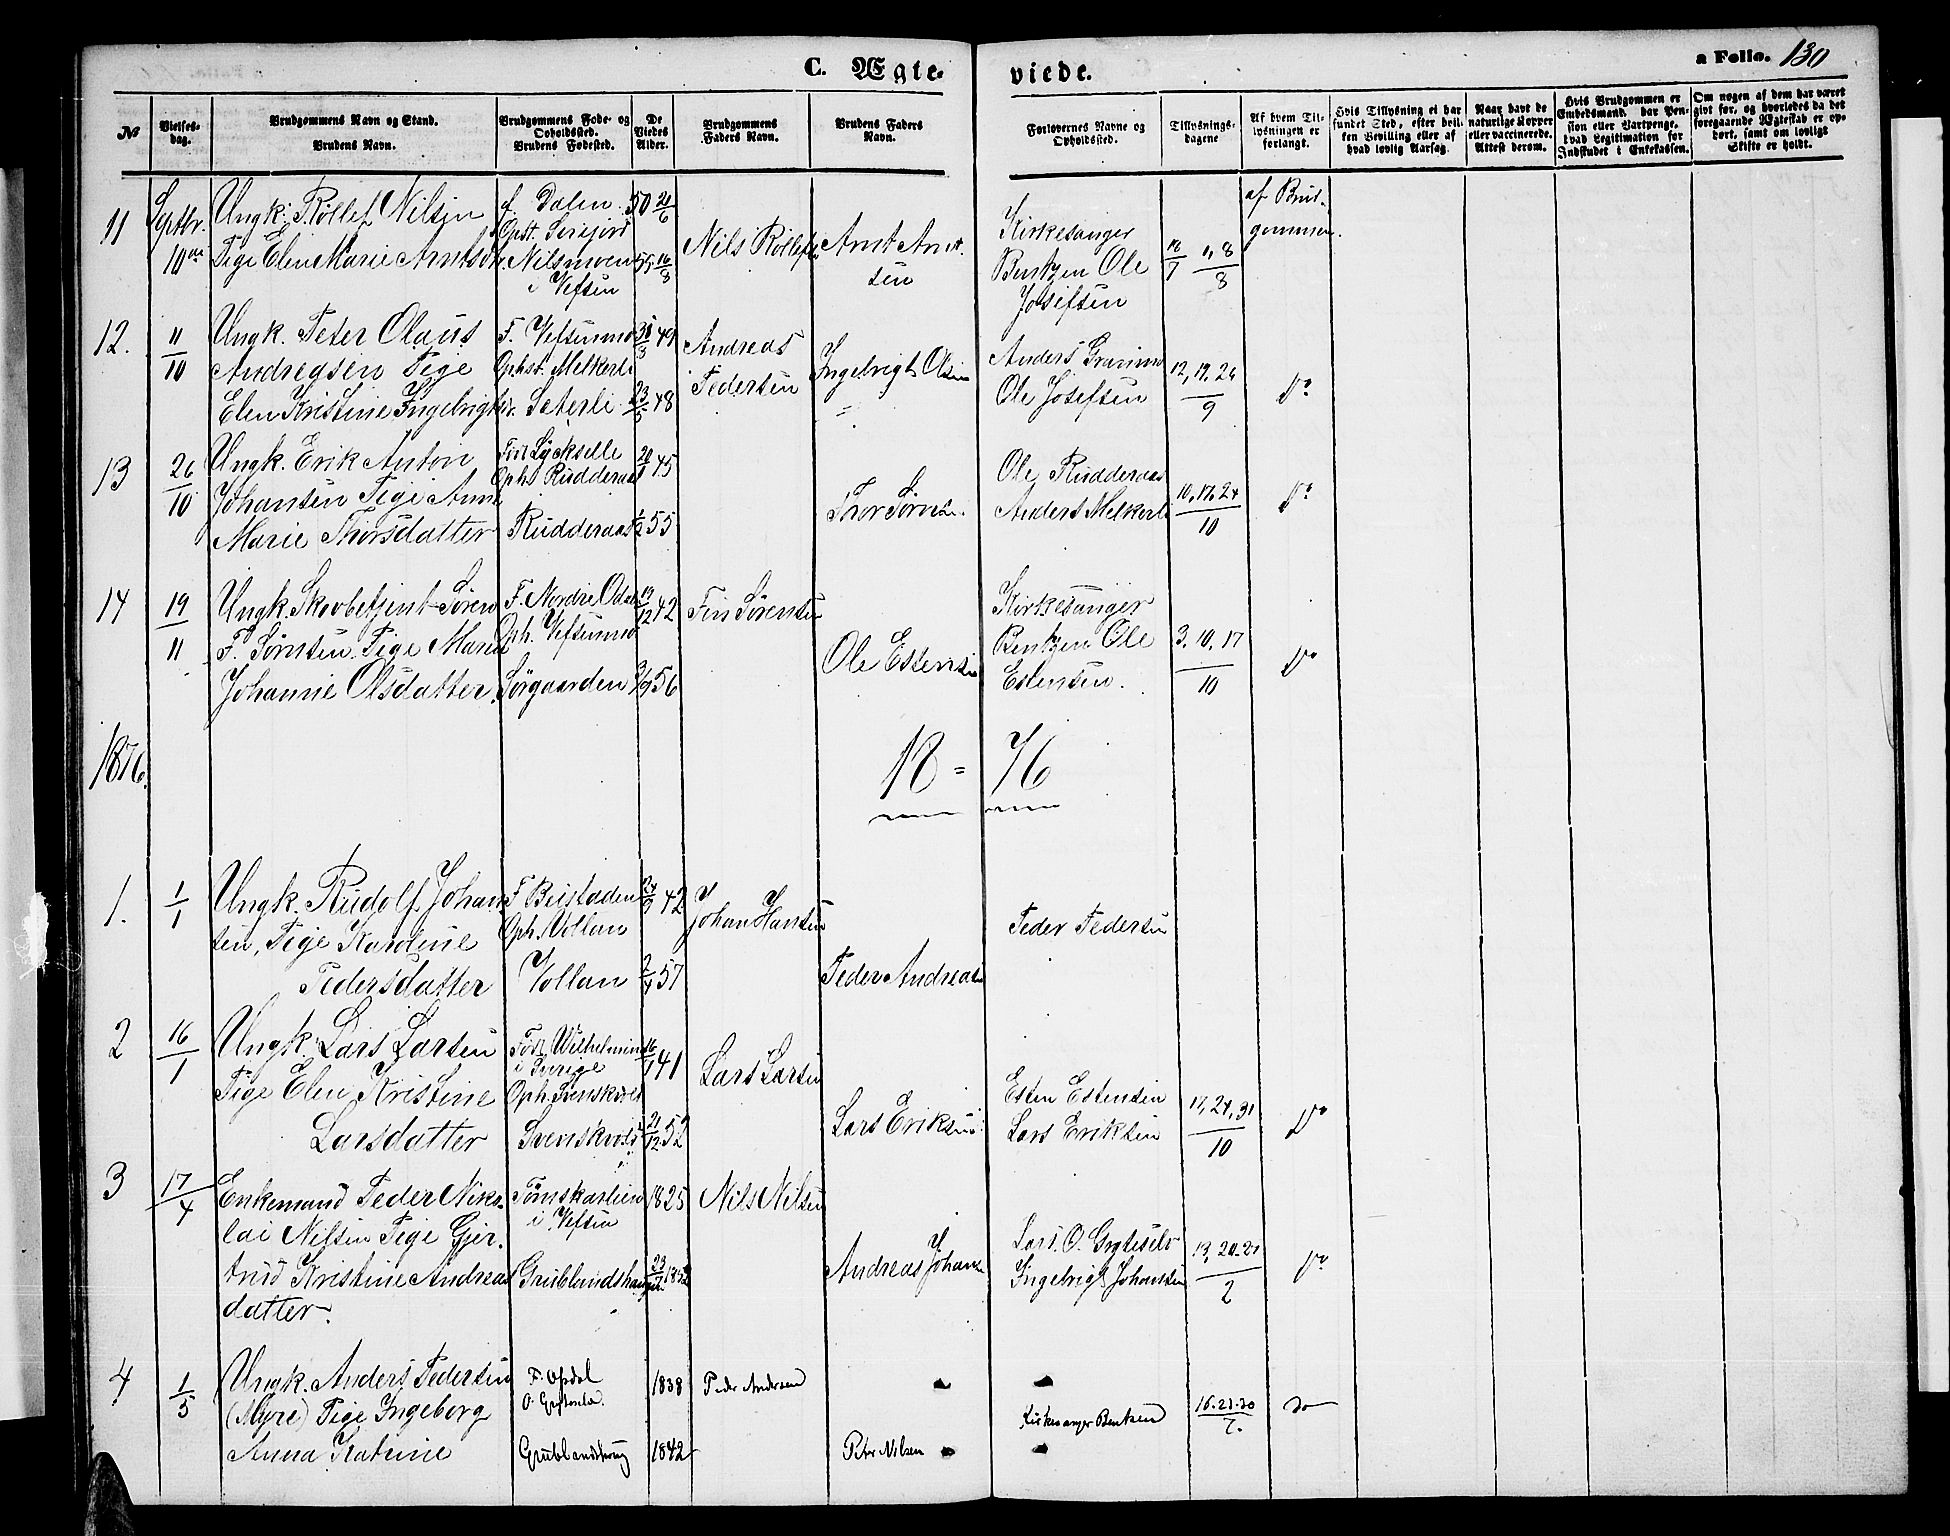 C. Ægteviede.
a Folio. 130
№
Vielsesdag.
Brudgommens Navn og Stand.
Brudens Navn.
Brudgommens Føde- og Opholdssted.
Brudens Fødested.
De Viedes Alder.
Brudgommens Faders Navn.
Brudens Faders Navn.
Forlovernes Navne og Opholdssted.
Tillysningsdagene
Af hvem Tillysningen er forlangt.
Hvis Tillysning ei har fundet Sted, efter hvilken Bevilling eller af hvad lovlig Aarsag.
Naar havt de naturlige Kopper eller vaccinerede. Attest derom.
Hvis Brudgommen er Embedsmand, har Pension eller Vartpenge, hvad Legitimation for Indskudet i Enkekassen.
Om nogen af dem har været givt før, og hvorledes da det foregaaende Ægteskab er ophørt, samt om lovligt Skifte er holdt.
11
Septbr. 10de
Ungk. Rollef Nilsen
Pige Elen Marie Arntsd.
f. Dalen
Opst.
Nilsmoen
i Vefsen
50 21/6
16/8
Nils Rollefsen
Arnt Arntsen
Kirkesanger
Bentzen Ole
Josefsen
18/7 1, 8/8
af Brudgommen.
12.
11/10
Ungk. Peter Olaus
Andreasen Pige
Elen Kristine Ingebrigts
F. Vefsenmo
Ophst. Melkerli
Seterli
49
23/5 48
Andreas
Pedersen
Ingebrigt Olsen
Anders
Ole Josefsen
12, 19, 26/9
Do
13
26/10
Ungk. Erik Anton
Johansen Pige Anne
Marie Thorsdatter
Lycksele
Ophs Rudderaas
Rudderaas
20/1 45
1/2 55
Ole Rudderaas
Anders Melkerli
10, 17, 24/10
Do
14
19/11
Ungk. Skovbetjent Sören
F. Sørnsen Pige Maria
Johanne Olsdatter.
F. Nordre Odal
Oph. Vefsenmo
Sørgaarden
19/12 42
56
Fin Sørensen
Ole Estensen
Kirkesanger
Bentzen Ole
Estensen.
3. 10, 17/10
Do
1876.
18 = 76
1.
1/1
Ungk. Rudolf Johansen, Pige Karoline
Pedersdatter
F Bustaden
Oph. Vollan
Vollan
24/9 42
2/4 57
Johan Hansen
Peder Andreas
Peder Pedersen
2
16/1
Ungk. Lars Larsen
Pige Elen Kristine
Larsdatter
Født Wilhelmina
i Sverige
Oph. Svenskvold
Svenskvold
41
21/12 52
Lars Larsen
Lars Eriksen
Esten Estensen
Lars Eriksen
17, 24, 31/10
Do
3
17/4
Enkemand Peder Nikolai Nilsen Pige Gjertrud Kristine Andreasdatter.
i Vefsen
Grublandshaug
1825
Nils Nilsen
Andreas Johans
Lars O. Grytselv
Ingebrigt Johansen
13, 20, 27/2
Do
4
1/5
Ungk. Anders Pedersen
(Myre) Pige Ingeborg
Anna Katrine
F. Opdal
O.
Grublandshaug
1838
1842
Peder Andersen
Peter Nilsen
Kirkesanger Bentzen
16. 23. 30
do